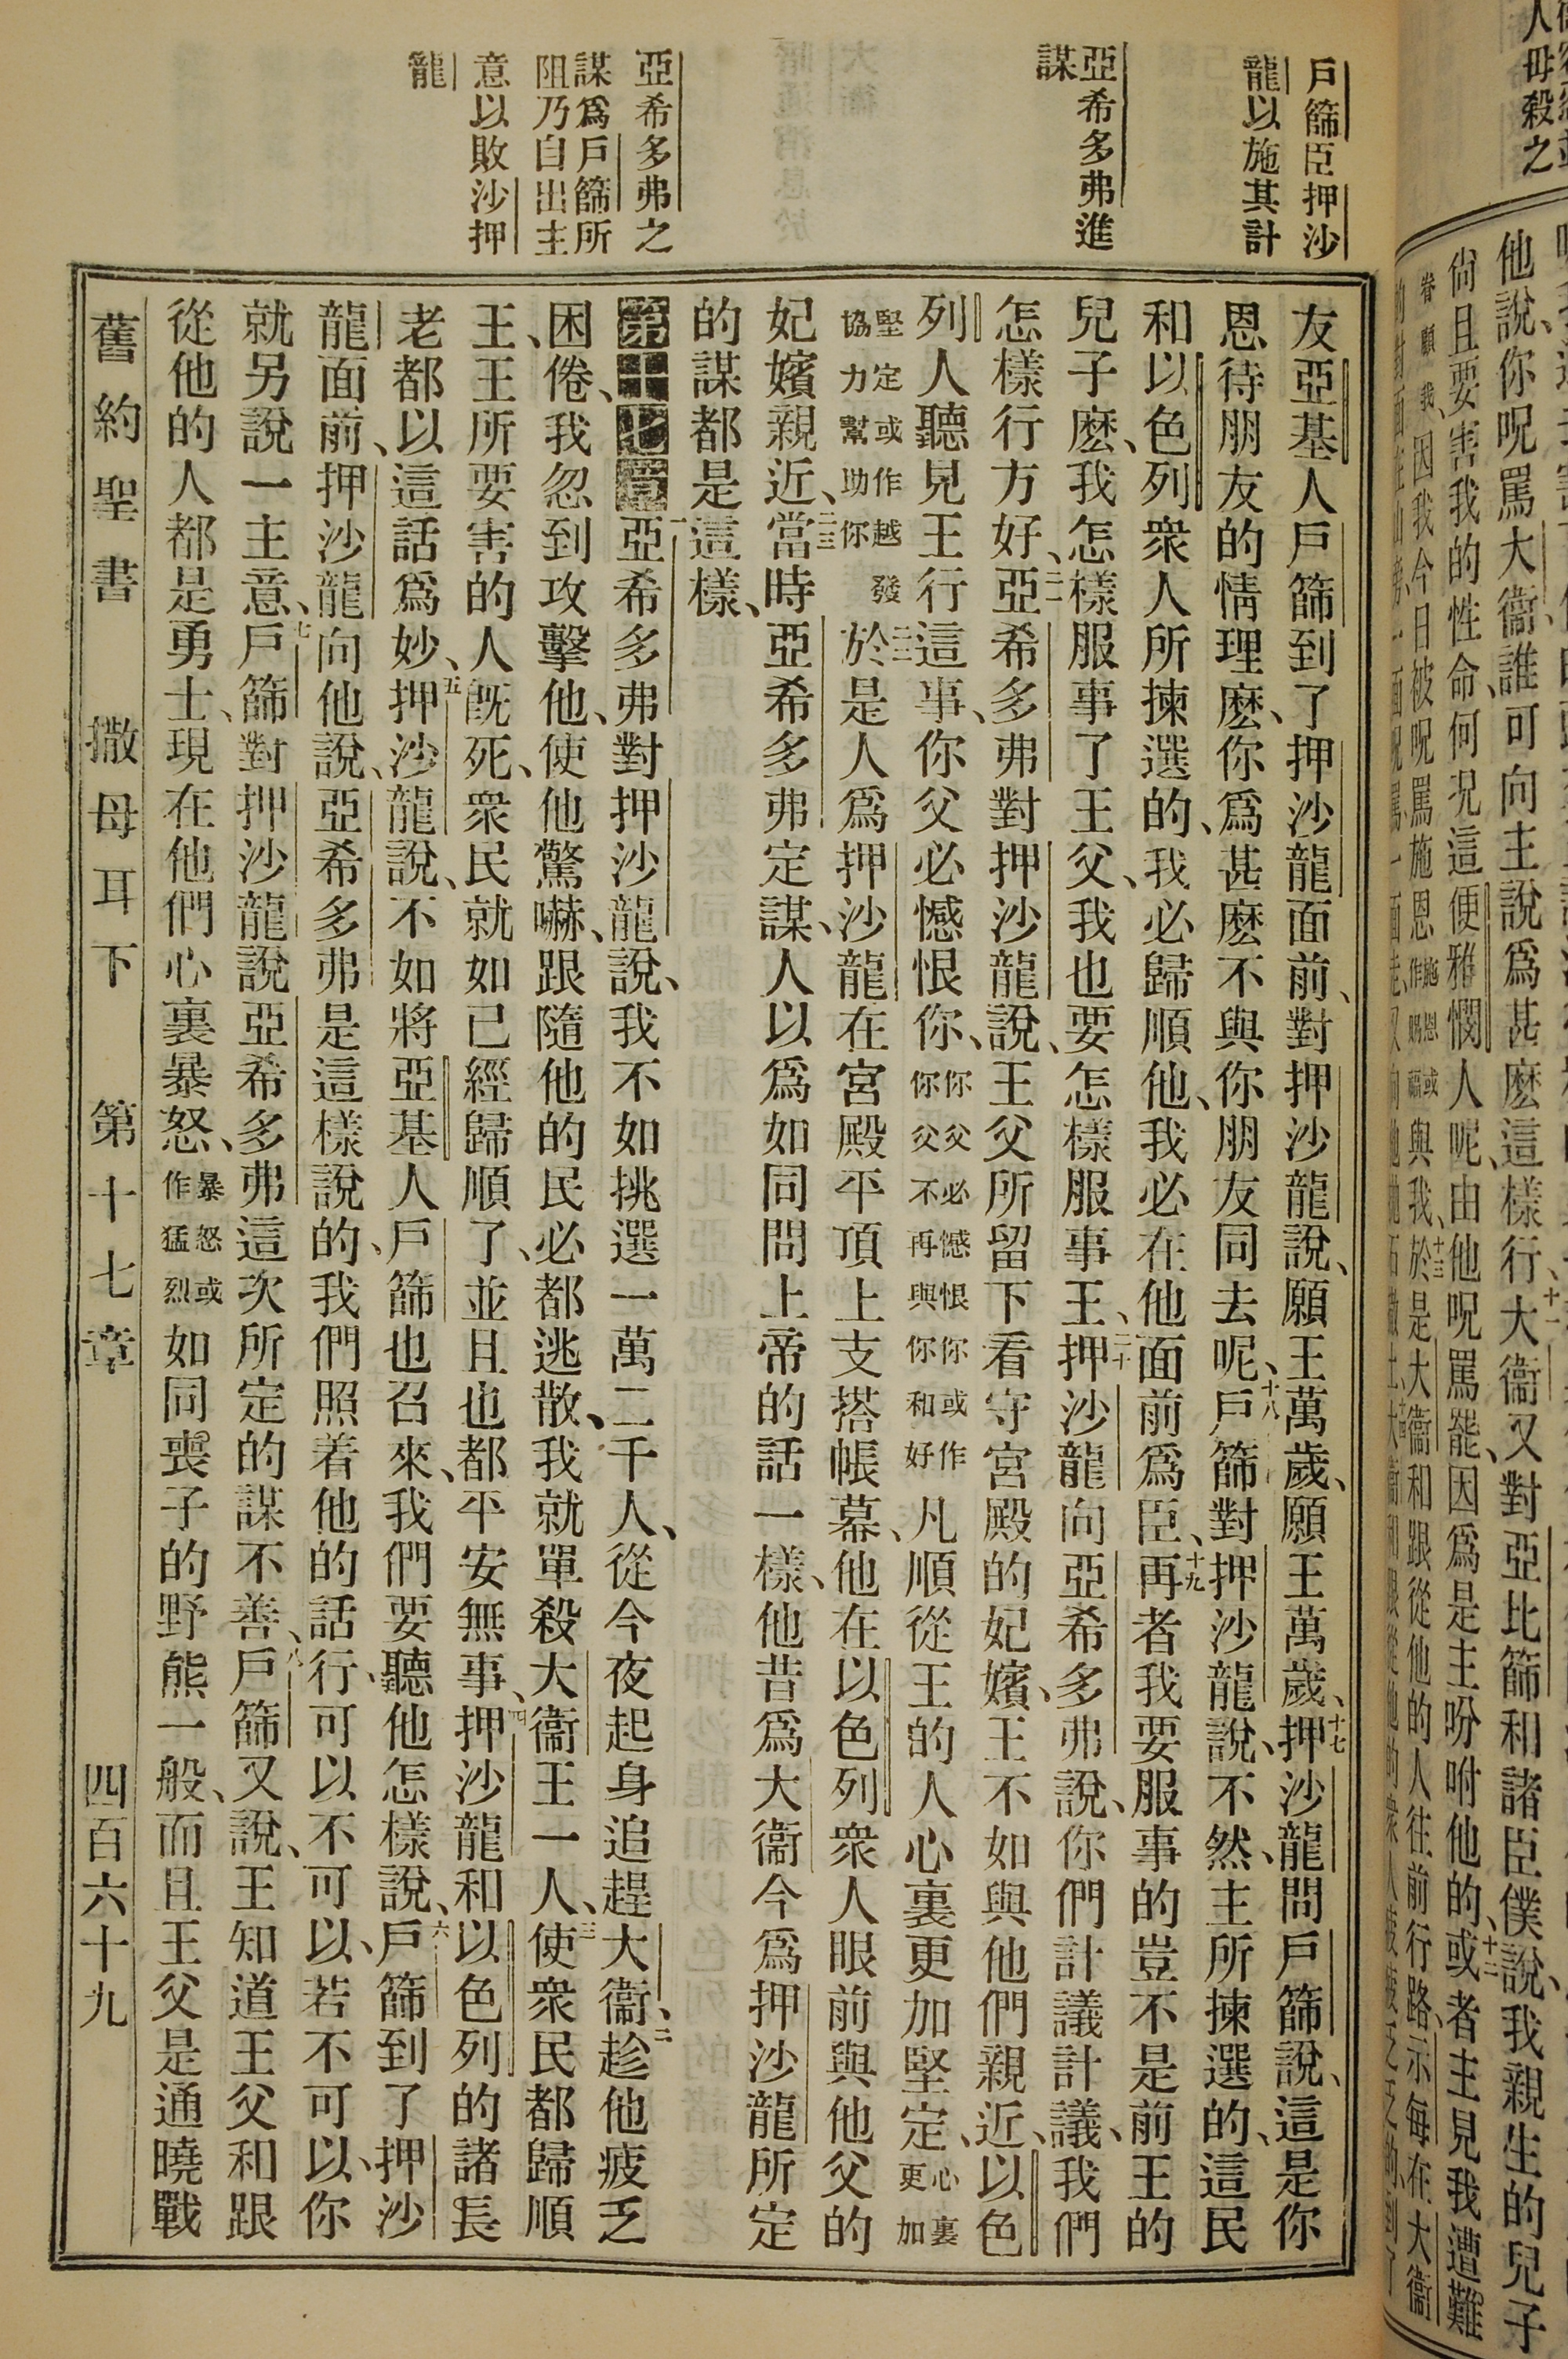 人毋殺之
他說、你呪罵大衞、誰可向主說、爲甚麽這樣行、大衞又對亞比篩和諸臣僕說、我親生的兒子
尙且要害我的性命、何況這便雅憫人呢、由他呪罵罷、因爲是主吩咐他的、十二或者主見我遭難
眷顧我、因我今日被呪罵施恩施恩或作賜福與我、十三於是大衞和跟從他的人往前行路、示每在大衞
戶篩臣押沙
龍以施其計
亞希多弗進
謀
亞希多弗之
謀爲戶篩所
阻乃自出主
意以敗沙押
龍
友亞基人戶篩到了押沙龍面前、對押沙龍說、願王萬歲、願王萬歲、十七押沙龍問戶篩說、這是你
恩待朋友的情理麽、你爲甚麽不與你朋友同去呢、十八戶篩對押沙龍說、不然、主所揀選的、這民
和以色列衆人所揀選的、我必歸順他、我必在他面前爲臣、十九再者我要服事的豈不是前王的
兒子麽、我怎樣服事了王父、我也要怎樣服事王、二十押沙龍向亞希多弗說、你們計議計議、我們
怎樣行方好、二一亞希多弗對押沙龍說、王父所留下看守宮殿的妃嬪、王不如與他們親近、以色
列人聽見王行這事、你父必憾恨你、你父必憾恨你或作你父不再與你和好凡順從王的人心裏更加堅定、心裏更加
堅定或作越發協力幫助你二二於是人爲押沙龍在宮殿平頂上支搭帳幕、他在以色列衆人眼前與他父的
妃嬪親近、二三當時亞希多弗定謀、人以爲如同問上帝的話一樣、他昔爲大衞今爲押沙龍所定
的謀都是這樣、
第十七章一亞希多弗對押沙龍說、我不如挑選一萬二千人、從今夜起身追趕大衞、二趁他疲乏
困倦、我忽到攻擊他、使他驚嚇、跟隨他的民必都逃散、我就單殺大衞王一人、三使衆民都歸順
王、王所要害的人旣死、衆民就如已經歸順了、並且也都平安無事、四押沙龍和以色列的諸長
老都以這話爲妙、五押沙龍說、不如將亞基人戶篩也召來、我們要聽他怎樣說、六戶篩到了押沙
龍面前、押沙龍向他說、亞希多弗是這樣說的、我們照着他的話行、可以不可以、若不可以、你
就另說一主意、七戶篩對押沙龍說亞希多弗這次所定的謀不善、八戶篩又說、王知道王父和跟
從他的人都是勇士、現在他們心裏暴怒、暴怒或作猛烈如同喪子的野熊一般、而且王父是通曉戰
舊約聖書 撒母耳下 第十七章 四百六十九